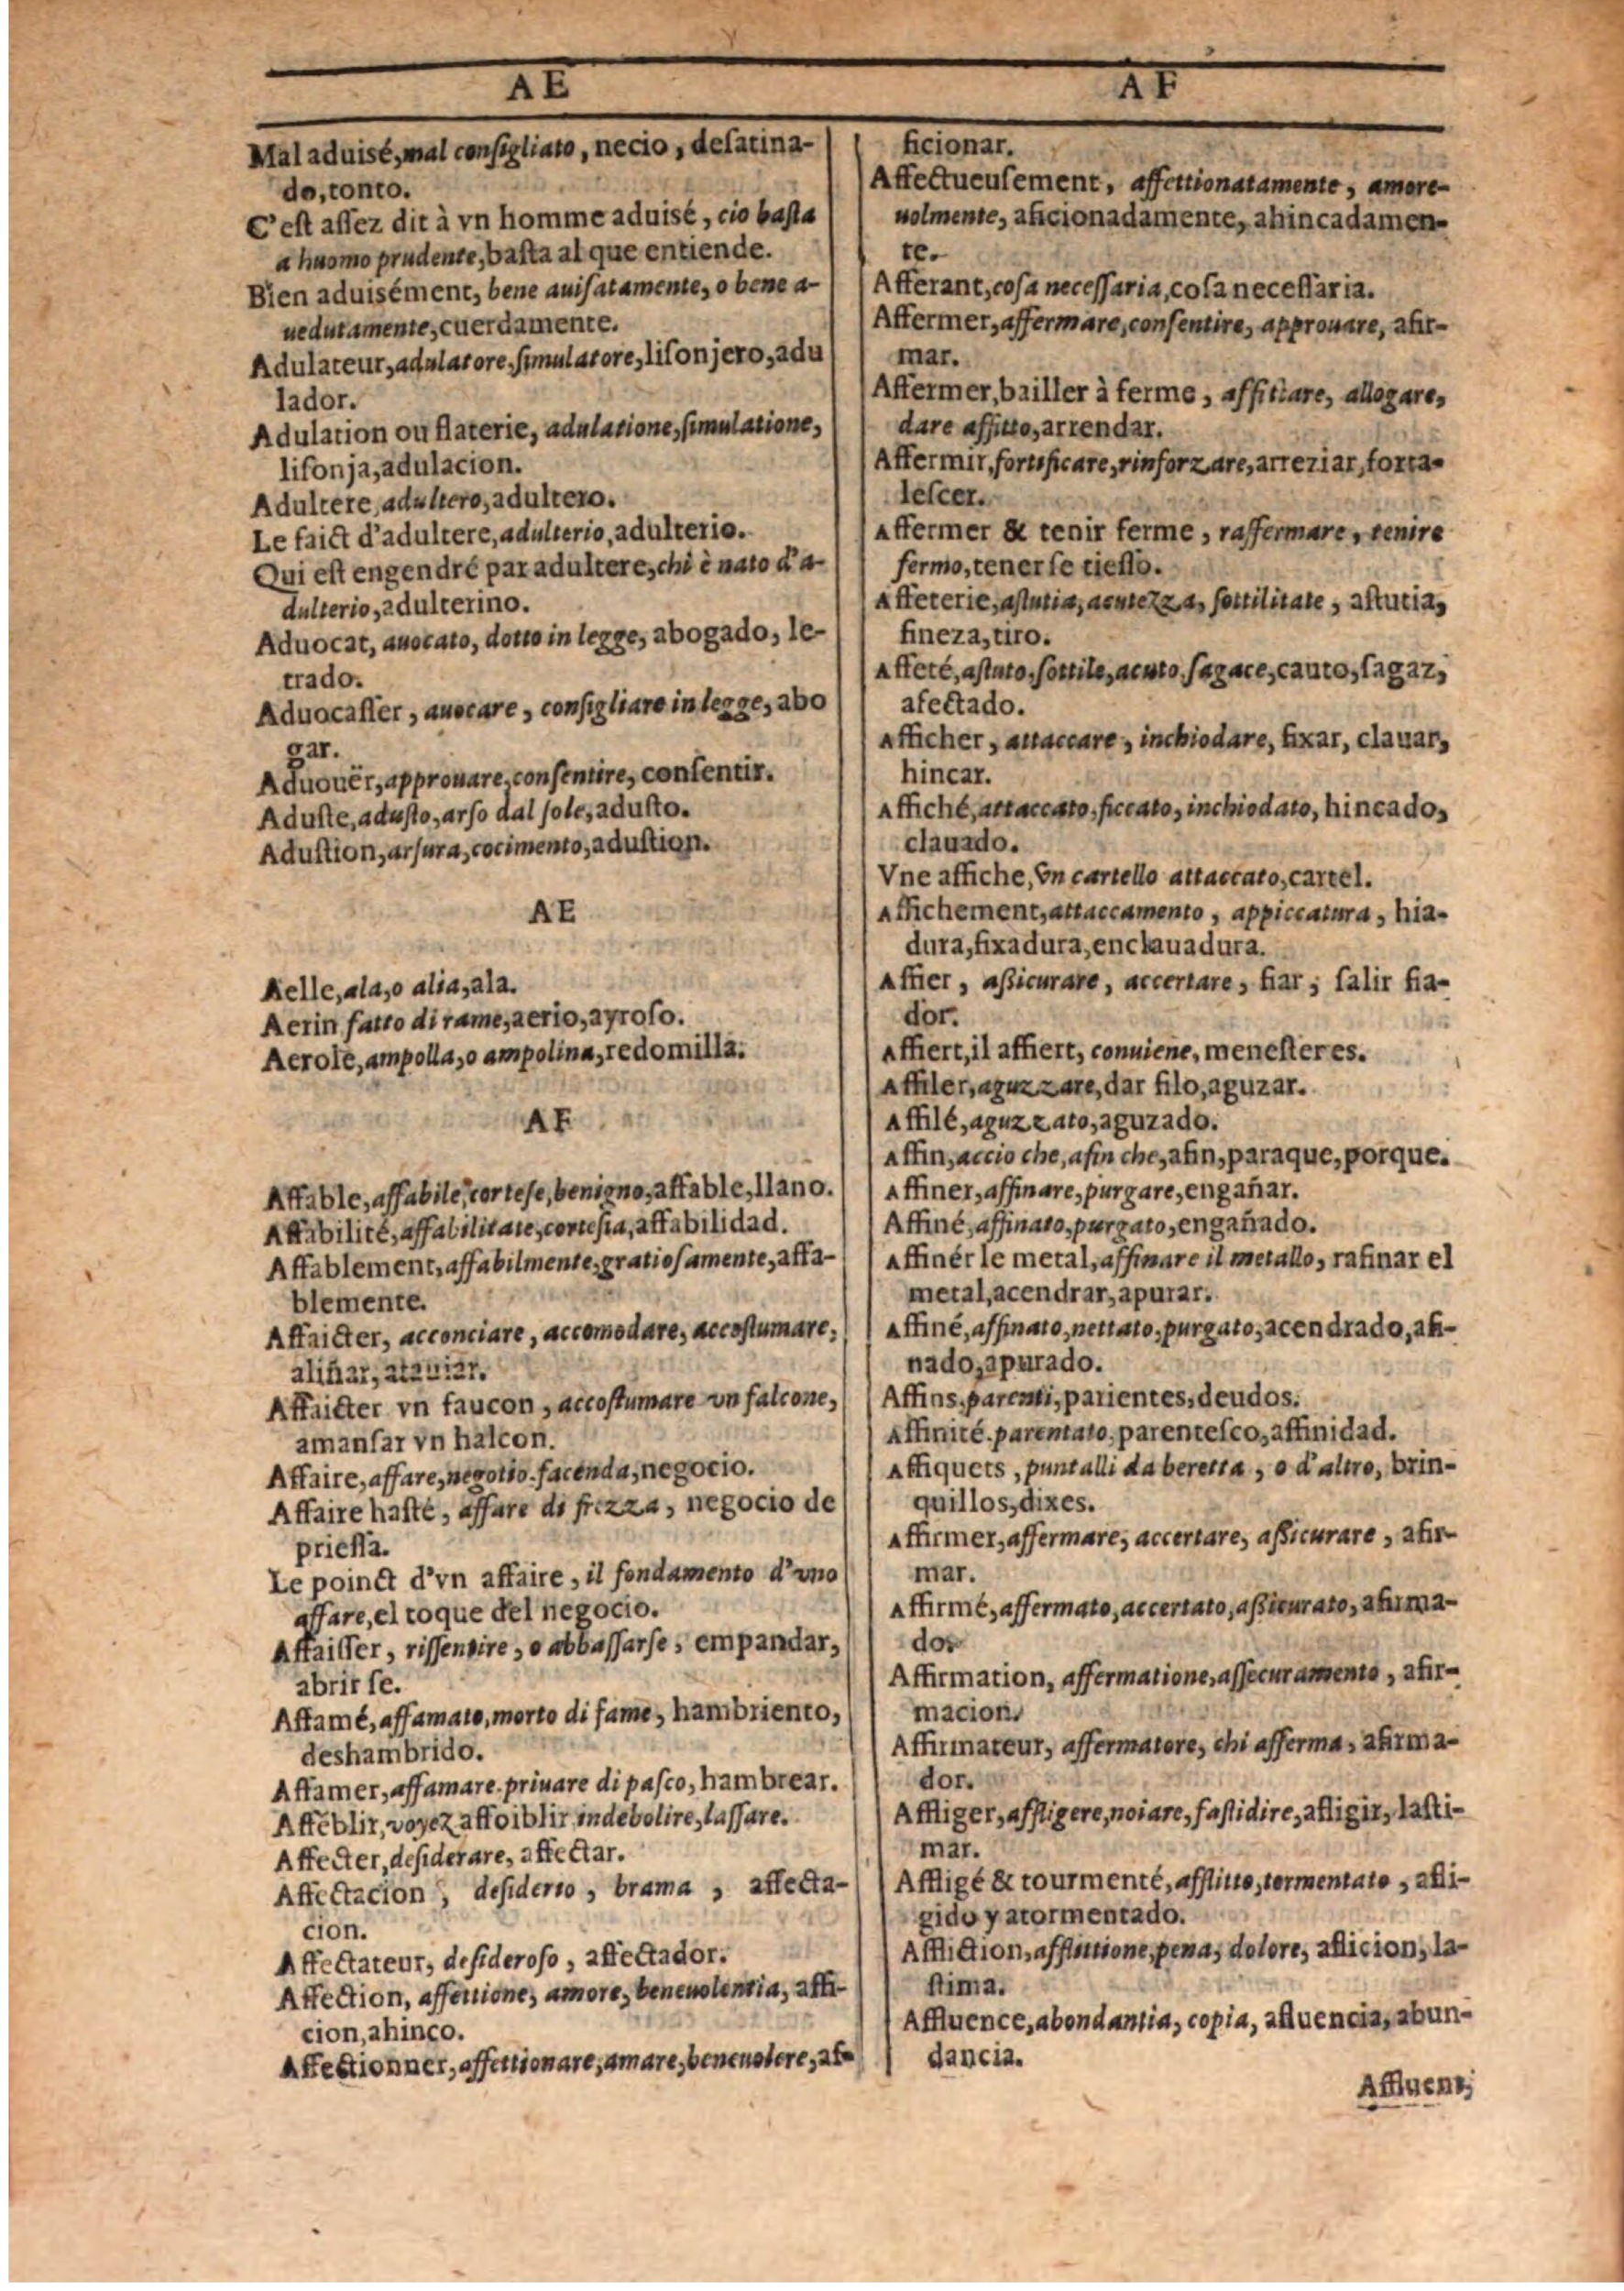 AE
AF
Mal aduisé, mal conſigliato, necio, deſatina-
do, tonto.
C'eſt aſſez dit à vn homme aduisé, cio baſta
a huomo prudente, baſta al que entiende.
Bien aduisément, bene auiſatamente, o bene a-
uedutamente, cuerdamente.
Adulateur, adulatore, ſimulatore, liſonjero, adu
lador.
Adulation ou flaterie, adulatione, ſimulatione,
liſonja, adulacion.
Adultere, adultero, adultero.
Le faict d'adultere, adulterio, adulterio.
Qui eſt engendré par adultere, chi è nato d'a-
dulterio, adulterino.
Aduocat, auocato, dotto in legge, abogado, le-
trado.
Aduocaſſer, auocare, conſigliare in legge, abo
gar.
Aduouër, approuare, conſentire, conſentir.
Aduſte, aduſto, arſo dal ſole, aduſto.
Aduſtion, arſura, cocimento, aduſtion.
AE
Aelle, ala, o alia, ala.
Aerin fatto di rame, aerio, ayroſo.
Aerole, ampolla, o ampolina, redomilla.
AF
Affable, affabile, corteſe, benigno, affable, llano.
Affabilité, affabilitate, corteſia, affabilidad.
Affablement, affabilmente, gratioſamente, affa-
blemente.
Affaicter, acconciare, accomodare, accoſtumare,
aliñar, atauiar.
Affaicter vn faucon, accoſtumare vn falcone,
amanſar vn halcon.
Affaire, affare, negotio. facenda, negocio.
Affaire haſté, affare di frezza, negocio de
prieſſa.
Le poinct d'vn affaire, il fondamento d'vno
affare, el toque del negocio.
Affaiſſer, riſſentire, o abbaſſarſe, empandar,
abrir ſe.
Affamé, affamato, morto di fame, hambriento,
deshambrido.
Affamer, affamare. priuare di paſco, hambrear.
Affêblir, voyez affoiblir, indebolire, laſſare.
Affecter, deſiderare, affectar.
Affectacion, deſiderio, brama, affecta-
cion.
Affectateur, deſideroſo, affectador.
Affection, affettione, amore, beneuolentia, affi-
cion, ahinco.
Affectionner, affettionare, amare, beneuolere, af-
ficionar.
Affectueuſement, affettionatamente, amore-
uolmente, aficionadamente, ahincadamen-
te.
Afferant, coſa neceſſaria, coſa neceſſaria.
Affermer, affermare, conſentire, approuare, afir-
mar.
Affermer, bailler à ferme, affittare, allogare,
dare affitto, arrendar.
Affermir, fortificare, rinforzare, arreziar, forta-
leſcer.
Affermer & tenir ferme, raffermare, tenire
fermo, tener ſe tieſſo.
Affeterie, aſtutia, acutezza, ſottilitate, aſtutia,
fineza, tiro.
Affeté, aſtuto. ſottile, acuto. ſagace, cauto, ſagaz,
afectado.
Afficher, attaccare, inchiodare, fixar, clauar,
hincar.
Affiché, attaccato, ficcato, inchiodato, hincado,
clauado.
Vne affiche, vn cartello attaccato, cartel.
Affichement, attaccamento, appiccatura, hia-
dura, fixadura, enclauadura.
Affier, aſſicurare, accertare, fiar, ſalir fia-
dor.
Affiert, il affiert, conuiene, meneſter es.
Affiler, aguzzare, dar filo, aguzar.
Affilé, aguzzato, aguzado.
Affin, accio che, afin che, afin, paraque, porque.
Affiner, affinare, purgare, engañar.
Affiné, affinato, purgato, engañado.
Affinér le metal, affinare il metallo, rafinar el
metal, acendrar, apurar.
Affiné, affinato, nettato, purgato, acendrado, afi-
nado, apurado.
Affins, parenti, parientes, deudos.
Affinité. parentato, parenteſco, affinidad.
Affiquets, puntalli da beretta, o d'altro, brin-
quillos, dixes.
Affirmer, affermare, accertare, aſſicurare, afir-
mar.
Affirmé, affermato, accertato, aſſicurato, afirma-
do.
Affirmation, affermatione, aſſecuramento, afir-
macion.
Affirmateur, affermatore, chi afferma, afirma-
dor.
Affliger, affligere, noiare, faſtidire, afligir, laſti-
mar.
Affligé & tourmenté, afflitto, tormentato, afli-
gido y atormentado.
Affliction, afflittione, pena, dolore, aflicion, la-
ſtima.
Affluence, abondantia, copia, afluencia, abun-
dancia.
Affluent,